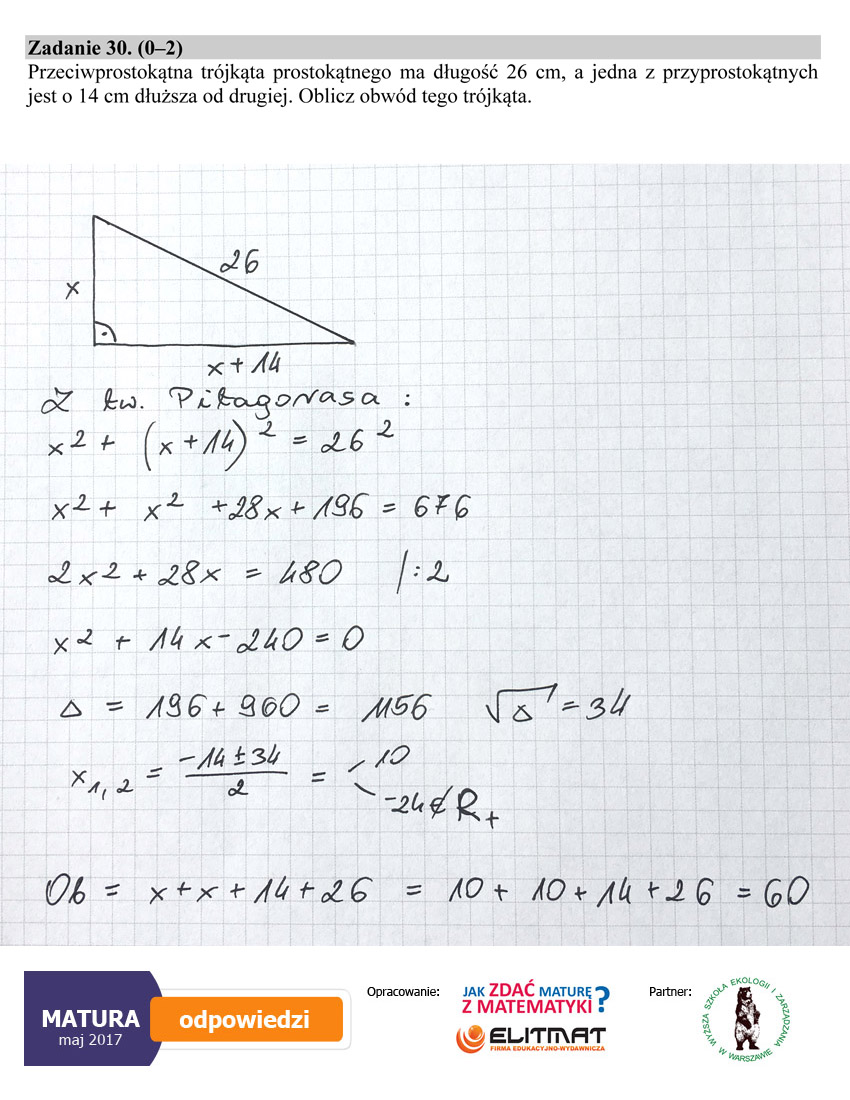 Zadanie 30. (0–2)
Przeciwprostokątna trójkąta prostokątnego ma długość 26 cm, a jedna z przyprostokątnych
jest o 14 cm dłuższa od drugiej. Oblicz obwód tego trójkąta.
26
x
x + 14
Z tw. Pitagorasa :
x² + (x + 14)² = 26²
x² + x² + 28x + 196 = 676
2x² + 28x = 480 /:2
x² + 14x - 240 = 0
Δ = 196 + 960 = 1156 √Δ = 34
x₁,₂ = (-14 ± 34)/2 = 10
-24 ∉ R₊
Ob = x + x + 14 + 26 = 10 + 10 + 14 + 26 = 60
MATURA
maj 2017
odpowiedzi
Opracowanie:
JAK ZDAĆ MATURĘ
Z MATEMATYKI?
ELITMAT
FIRMA EDUKACYJNO-WYDAWNICZA
Partner:
WYŻSZA SZKOŁA EKOLOGII I ZARZĄDZANIA
W WARSZAWIE